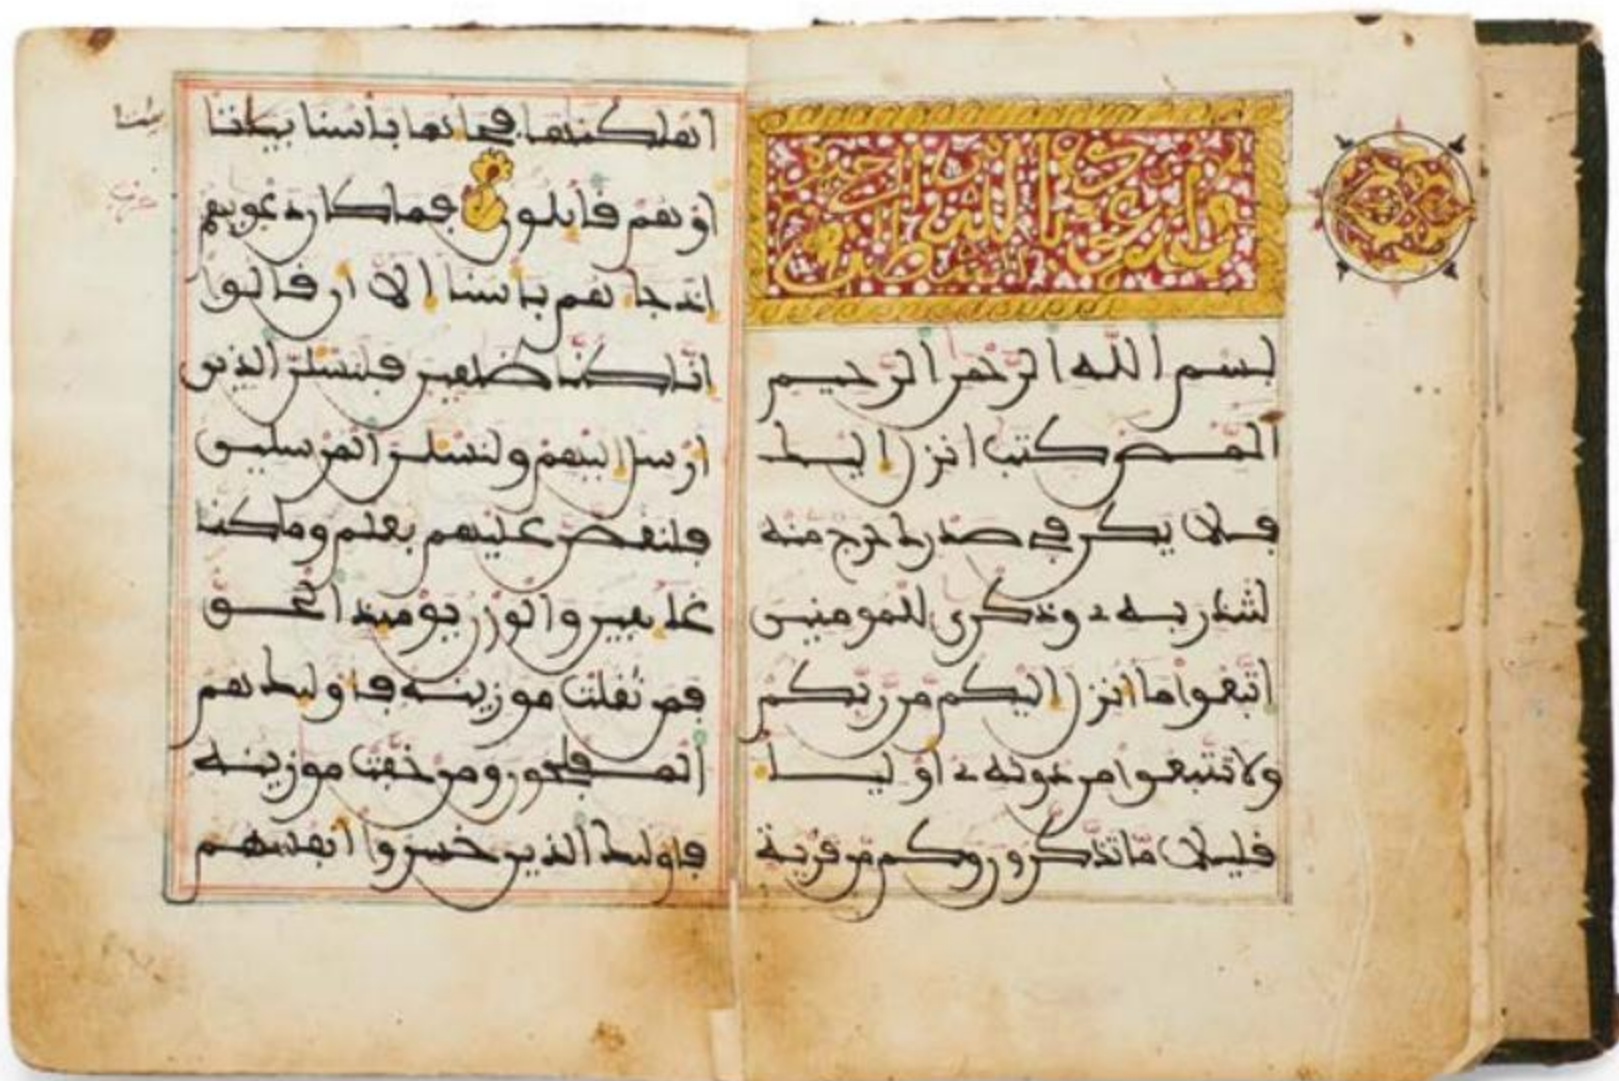 بسم الله الرحمن الرحيم
المص كتب انزل اليك
فلا يكن في صدرك حرج منه
لتنذر به وذكرى للمومنين
اتبعوا ما انزل اليكم من ربكم
ولا تتبعوا من دونه اوليا
قليلا ما تذكرون وكم من قرية
اهلكنها فجاءها باسنا بيتا
او هم قايلون فما كان دعويهم
اذ جاءهم باسنا الا ان قالوا
انا كنا ظلمين فلنسلن الذين
ارسل اليهم ولنسلن المرسلين
فلنقصن عليهم بعلم وما كنا
غايبين والوزن يوميذ الحق
فمن ثقلت موزينه فاوليك هم
المفلحون ومن خفت موزينه
فاوليك الذين خسروا انفسهم